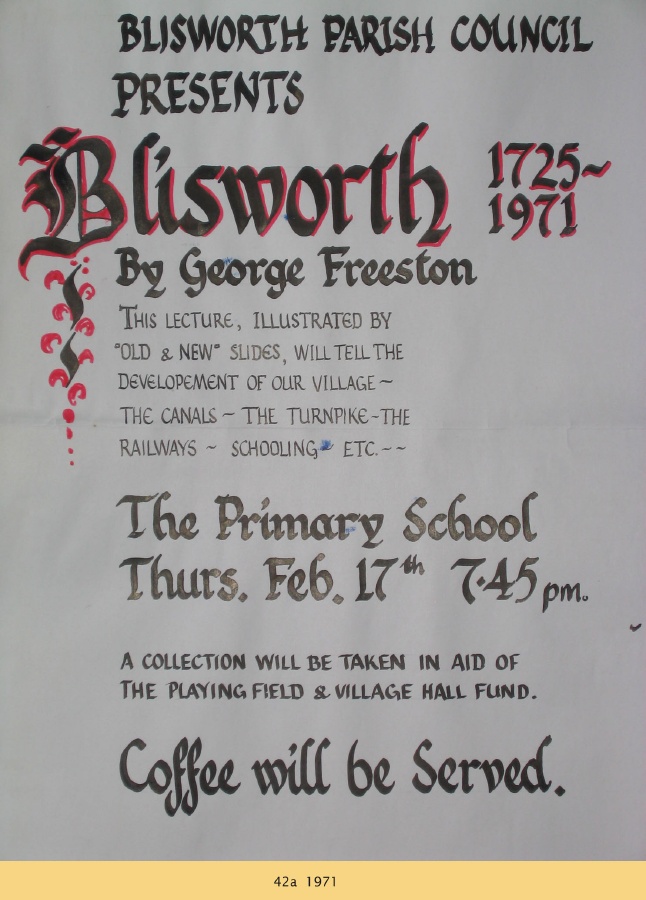 BLISWORTH PARISH COUNCIL
PRESENTS
Blisworth 1725~
1971
By George Freeston
THIS LECTURE, ILLUSTRATED BY
"OLD & NEW" SLIDES, WILL TELL THE
DEVELOPEMENT OF OUR VILLAGE ~
THE CANALS ~ THE TURNPIKE - THE
RAILWAYS ~ SCHOOLING ETC. ~ ~
The Primary School
Thurs. Feb. 17th 7·45 pm.
A COLLECTION WILL BE TAKEN IN AID OF
THE PLAYING FIELD & VILLAGE HALL FUND.
Coffee will be Served.
42a 1971